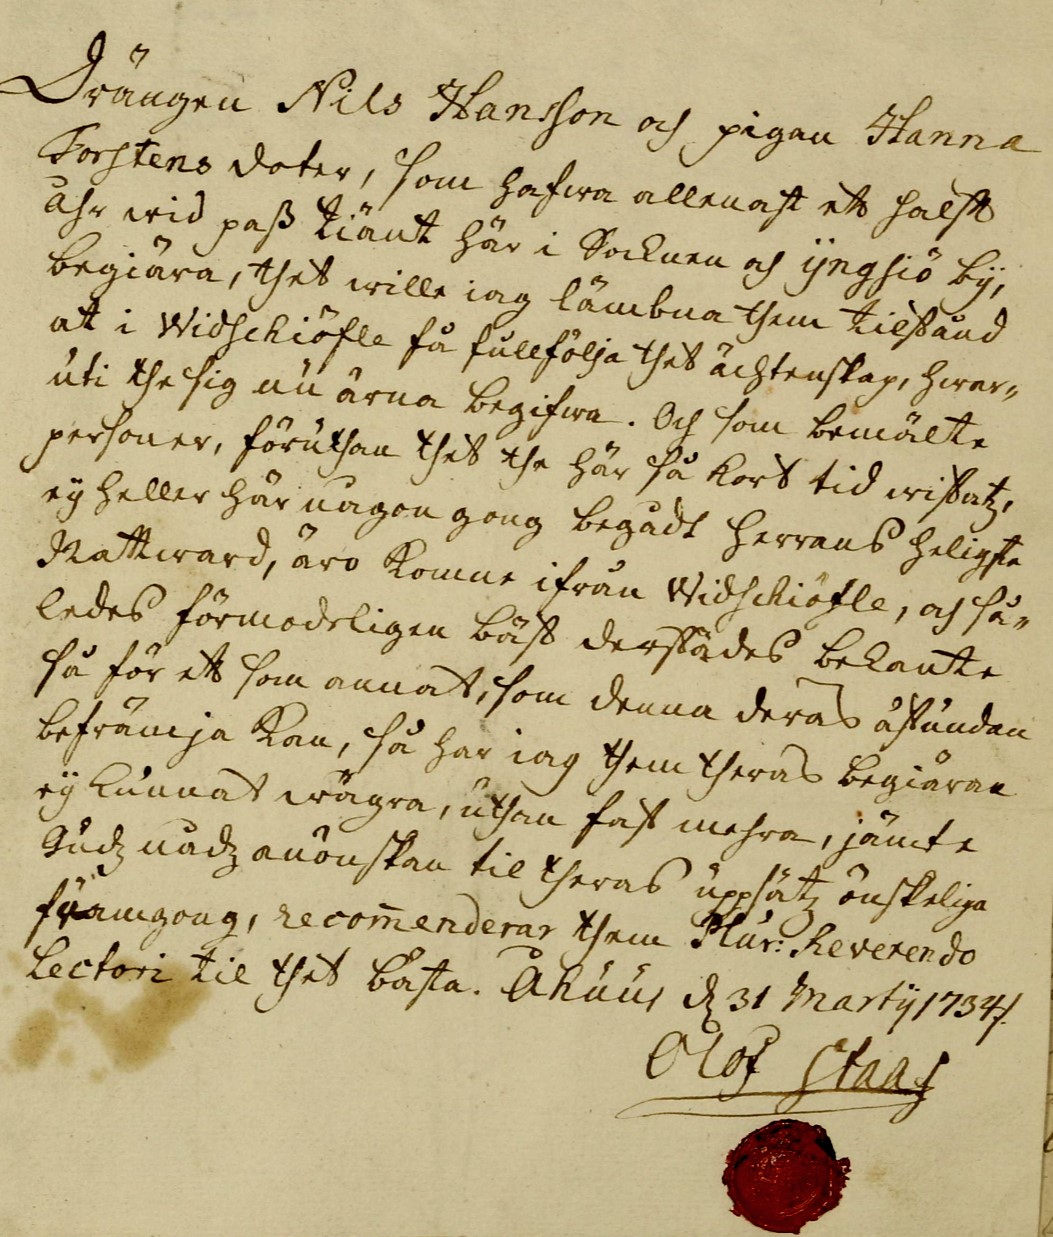 Drängen Nils Hansson och pigan Hanna
Torstens doter, som hafwa allenast ett halft
åhr wid pass tiänt här i Socknen och ÿngsiö bÿ,
begiära, thet wille iag lämbna them tilstånd
at i Widschiöfle få fullfölja thet ächtenskap, hwar„
uti the sig nu ärna begifwa. Och som bemälte
personer, föruthan thet the här så kort tid wistatz,
eÿ heller här nagon gong begådt Herrans heligste
Nattward, äro komne ifrån Widschiöfle, och så„
ledes förmodeligen bäst derstädes bekante
så för ett som annat, som denna deras åstundan
befrämja kan, så har iag them theras begiäran
eÿ kunnat wägra, uthan fast mehra, jämte
Gudz nådz anönskan til theras uppsåtz önskeliga
framgong, recom̄enderar them Plur: Reverendo
Lectori til thet bästa. Åhuus d 31 Martÿ 1734.
Olof Staaf